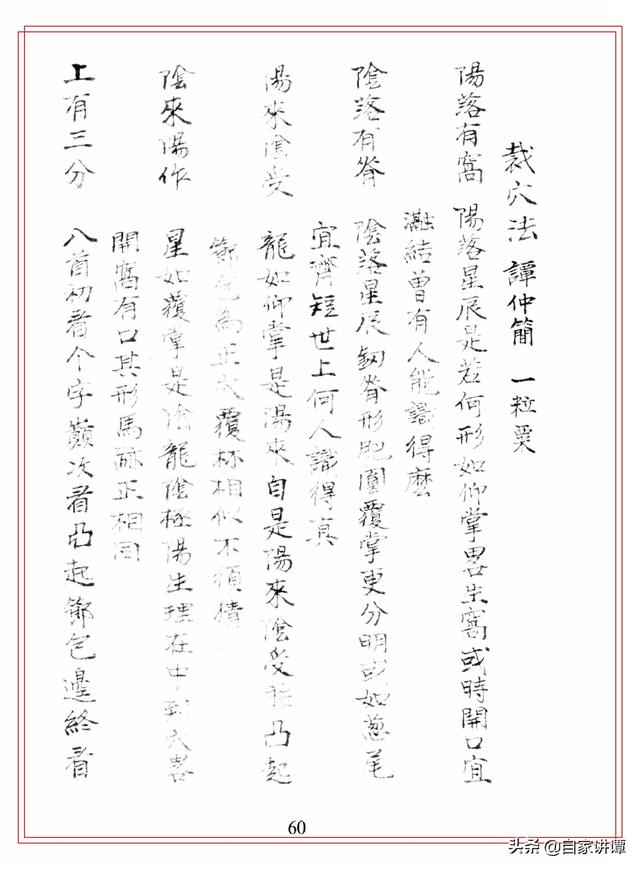 裁穴法 譚仲簡 一粒粟
陽落有窩 陽落星辰是若何形如仰掌畧生窩或時開口宜
瀜結曾有人能識得麼
陰落有脊 陰落星辰劒脊形肥圓覆掌更分明或如葱
宜齊短世上何人識得真
陽來陰受 龍如仰掌是陽來自是陽來陰受胎凸起
節包為正穴覆杯相似不須猜
陰來陽作 星如覆掌是陰龍陰極陽生理在中到穴畧
開窩有口其形馬跡正相同
上有三分 八首初看个字巔次看凸起節包邊終看
60
头条 @自家讲谭